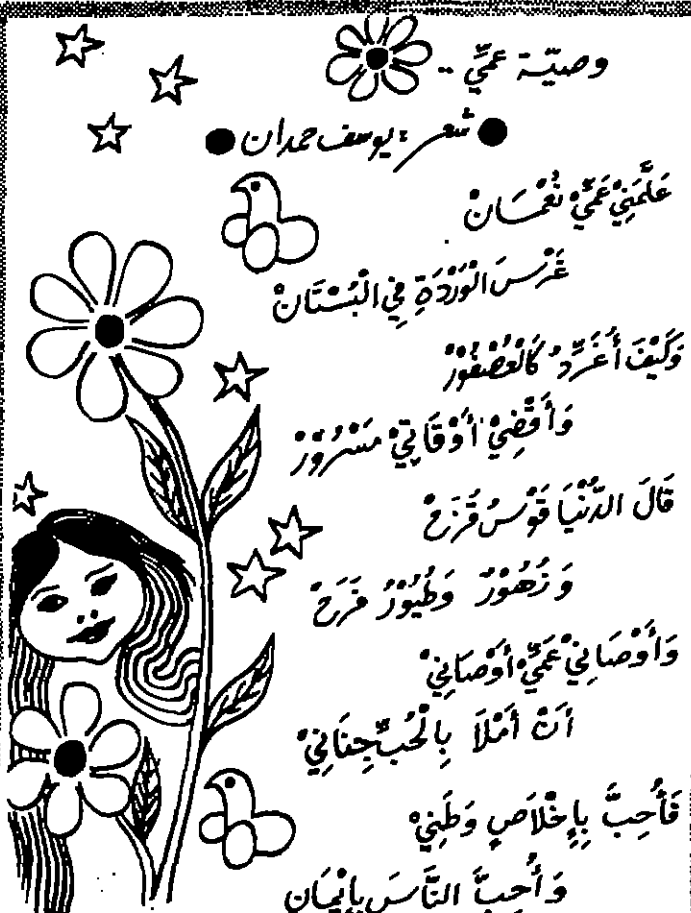 وصيّة عمّي ..
● شعر : يوسف حمدان ●
عَلَّمَنِيْ عَمِّيْ نُعْمَانْ
غَرْسَ الْوَرْدَةِ فِي الْبُسْتَانْ
وَكَيْفَ أُغَرِّدُ كَالْعُصْفُوْرْ
وَأَقْضِيْ أَوْقَاتِيْ مَسْرُوْرْ
قَالَ الدُّنْيَا قَوْسُ قُزَحْ
وَزُهُوْرٌ وَطُيُوْرُ فَرَحْ
وَأَوْصَانِيْ عَمِّيْ أَوْصَانِيْ
أَنْ أَمْلَأَ بِالْحُبِّ جِنَانِيْ
فَأُحِبَّ بِإِخْلَاصٍ وَطَنِيْ
وَأُحِبَّ النَّاسَ بِإِيْمَان